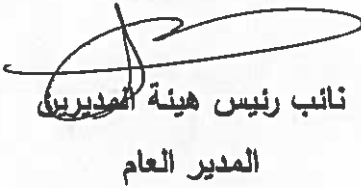 نائب رئيس هيئة المديرين
المدير العام